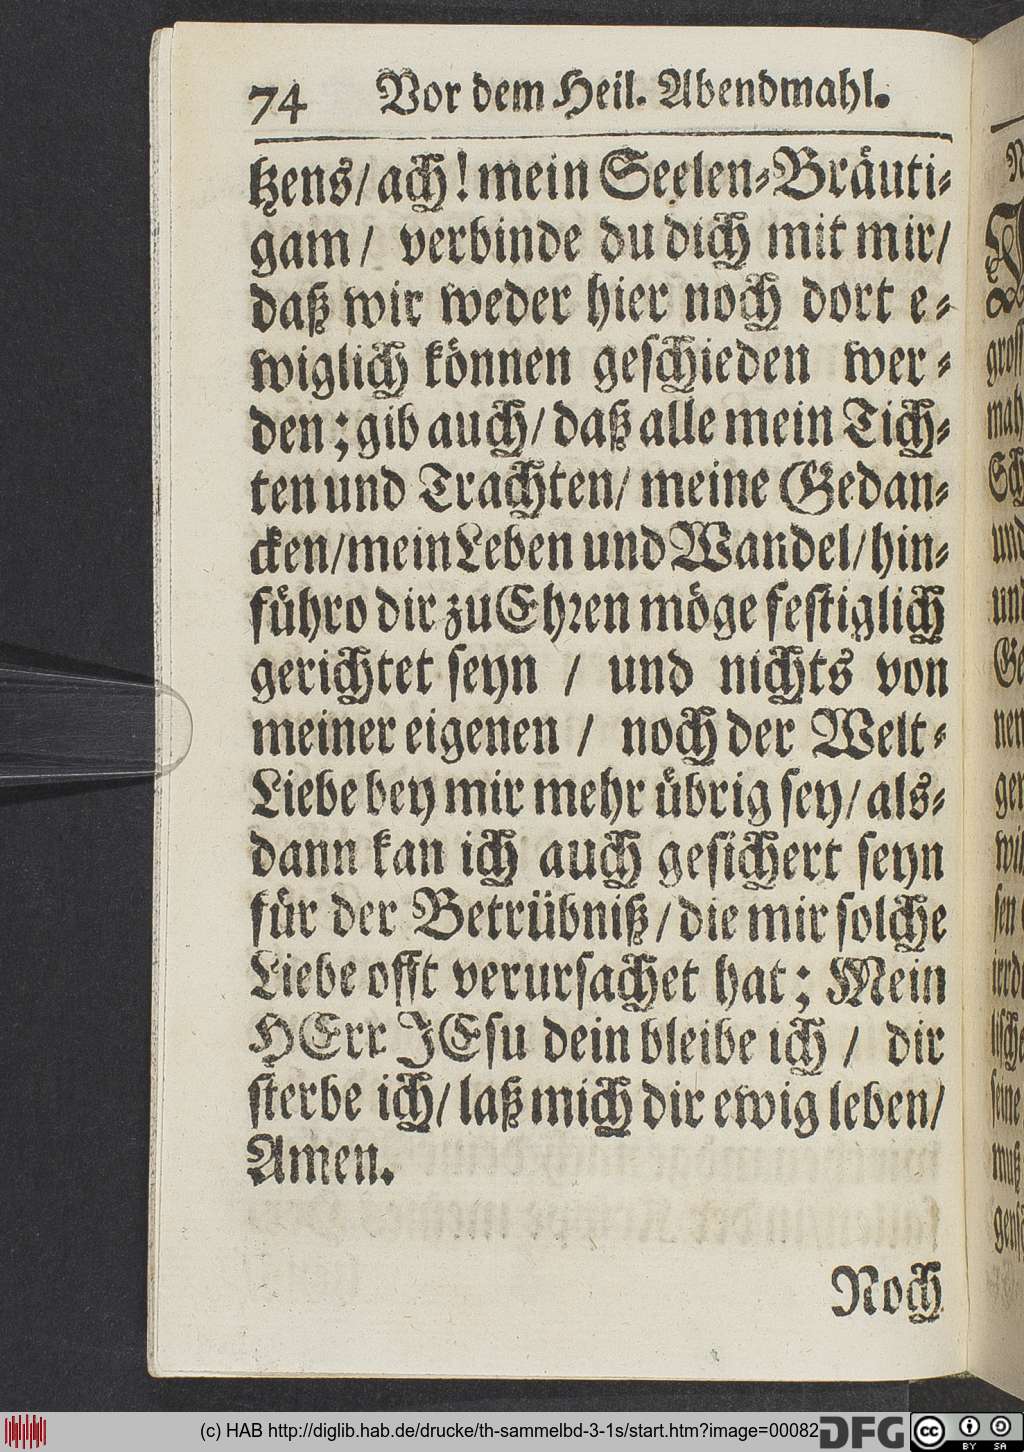 74 Vor dem Heil. Abendmahl.
tzens/ ach! mein Seelen-Bräuti-
gam/ verbinde du dich mit mir/
daß wir weder hier noch dort e-
wiglich können geschieden wer-
den; gib auch/ daß alle mein Tich-
ten und Trachten/ meine Gedan-
cken/ mein Leben und Wandel/ hin-
führo dir zu Ehren möge festiglich
gerichtet seyn / und nichts von
meiner eigenen / noch der Welt-
Liebe bey mir mehr übrig sey/ als-
dann kan ich auch gesichert seyn
für der Betrübniß/ die mir solche
Liebe offt verursachet hat; Mein
HErr JEsu dein bleibe ich / dir
sterbe ich/ laß mich dir ewig leben/
Amen.
Noch
(c) HAB http://diglib.hab.de/drucke/th-sammelbd-3-1s/start.htm?image=00082
DFG
cc BY SA